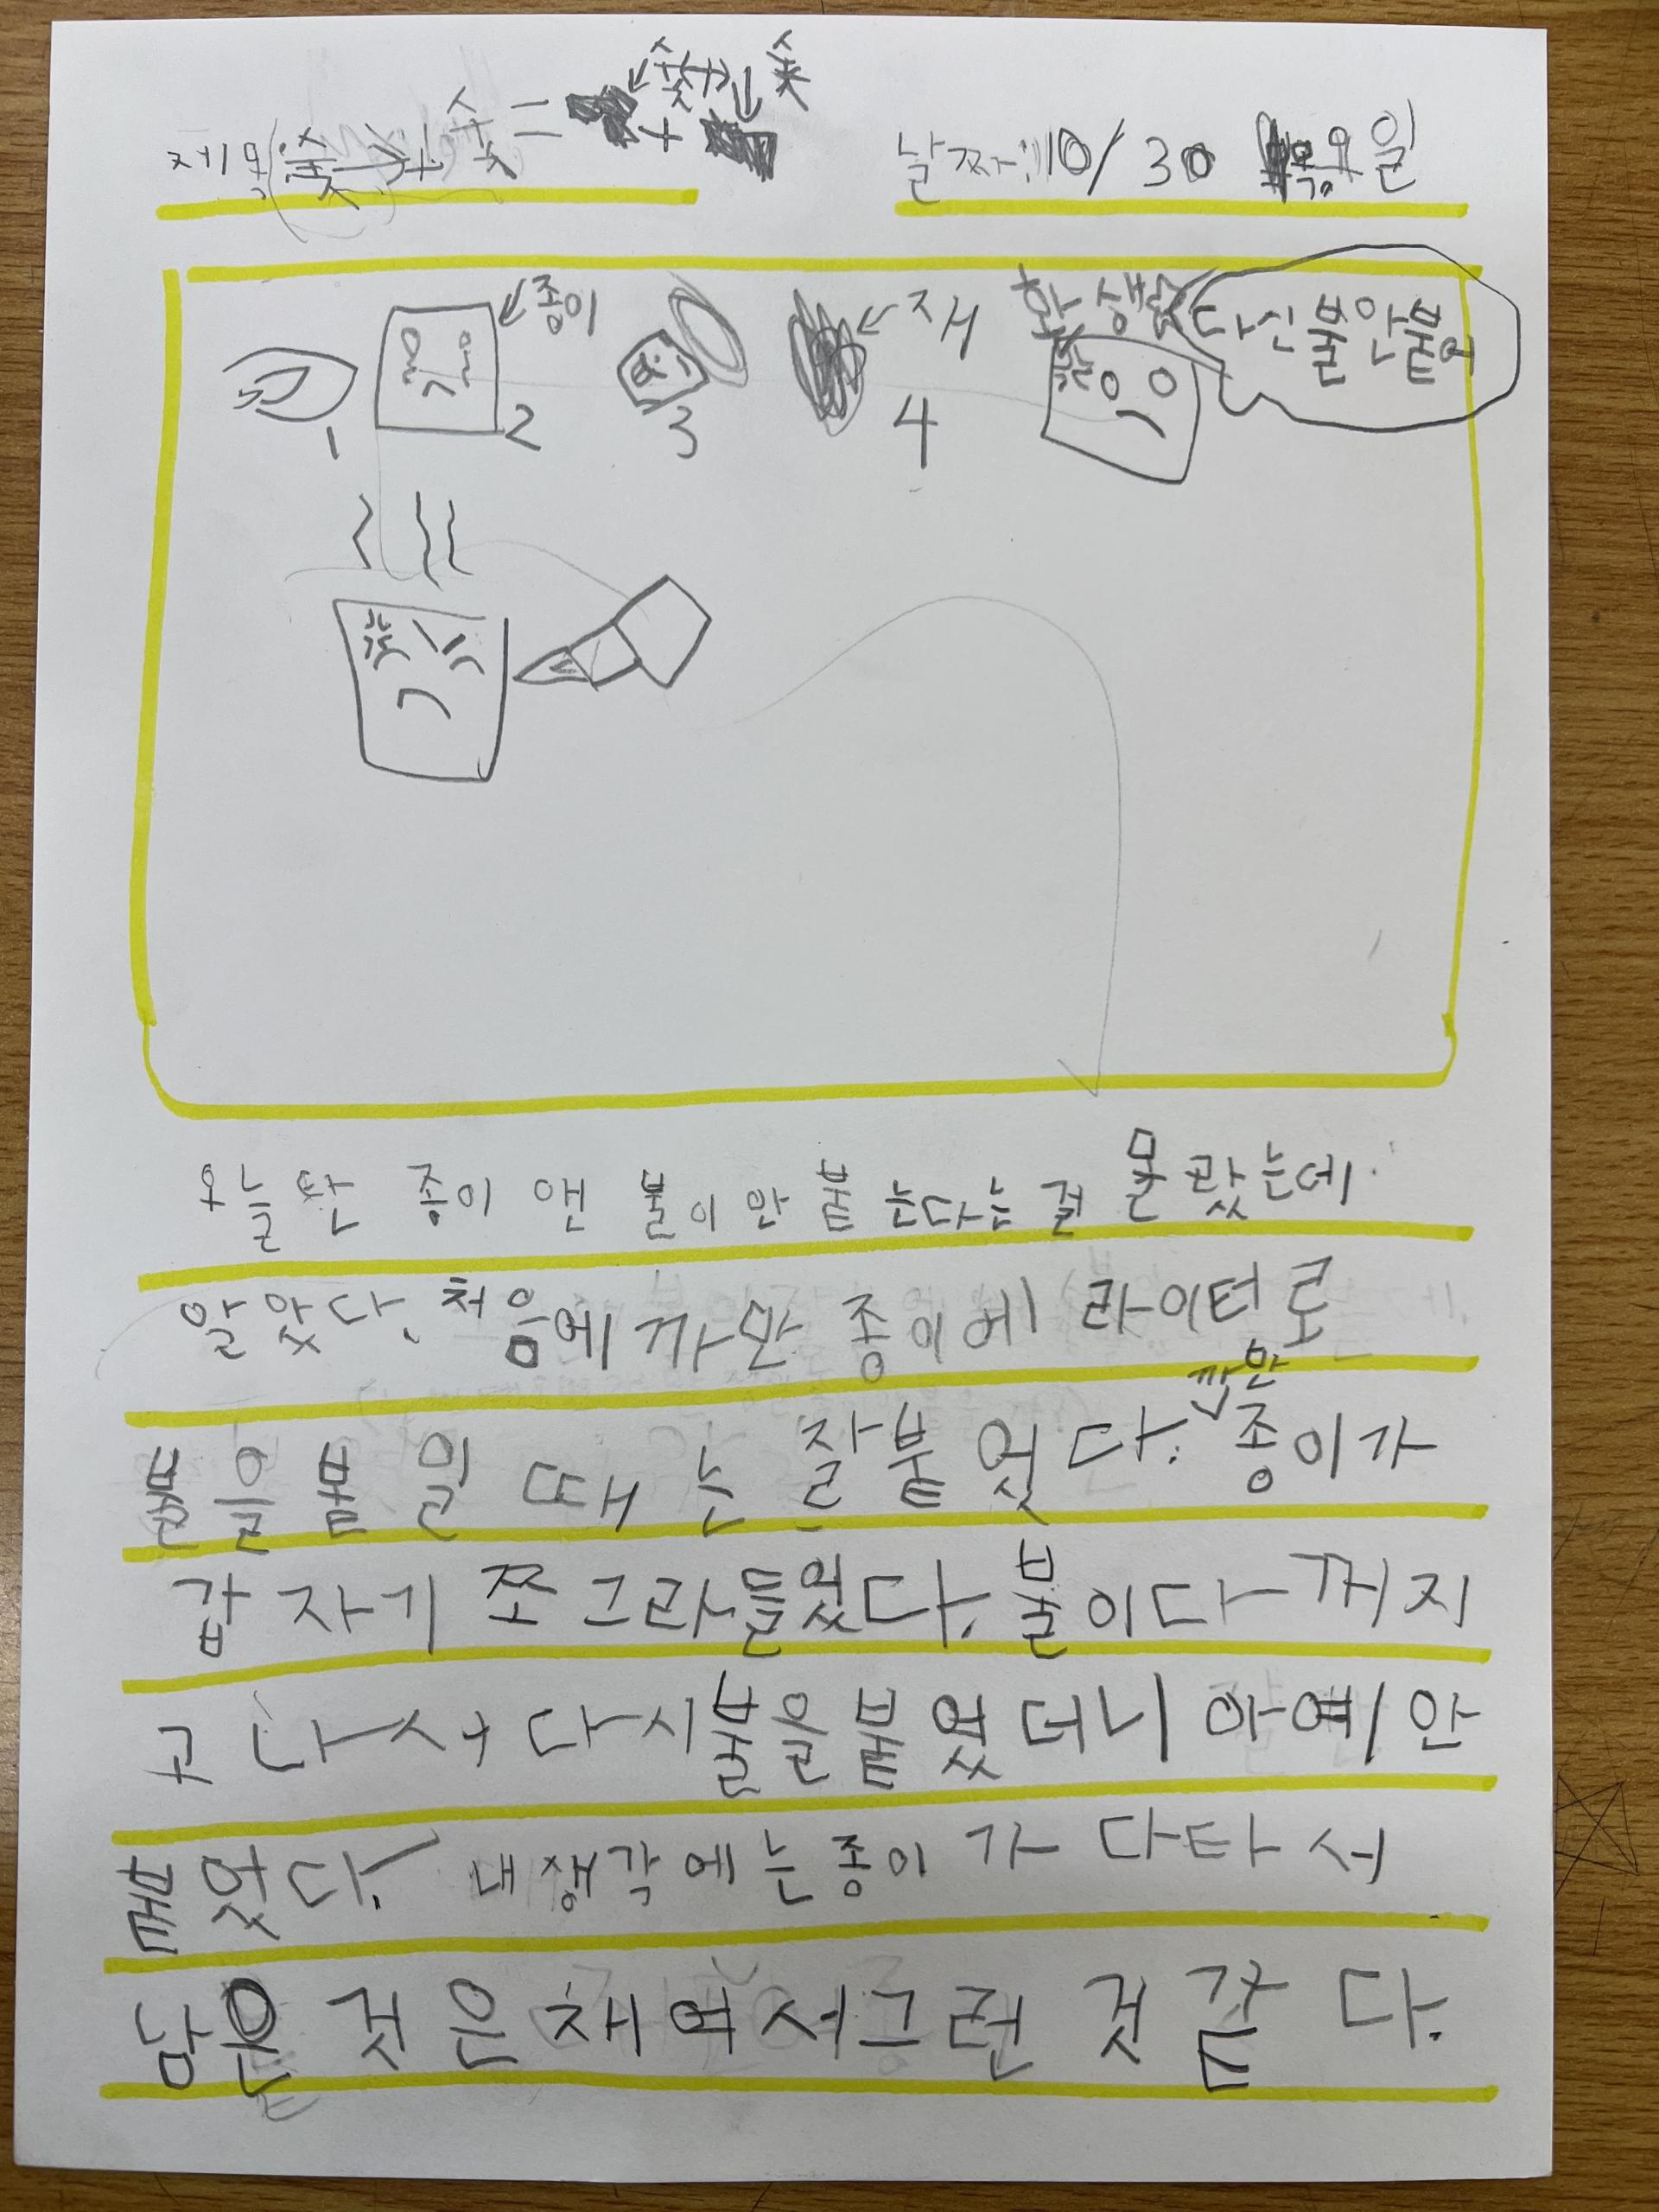 숯 숯
제목: 숯 + 숯 = +
날짜: 10/30 목요일
종이
재
환생
다신불안붙어
1 2 3 4
오늘 탄 종이 앤 불이 안 붙는다는 걸 몰랐는데
알았다. 처음에 까만 종이에 라이터로
까만
불을 붙일 때는 잘붙었다. 종이가
갑자기 쪼그라들었다. 불이다 꺼지
고 나서 다시불을붙였더니 아예 안
붙었다. 내생각에는종이가 다타서
남은 것은 채여서그런 것 같다.